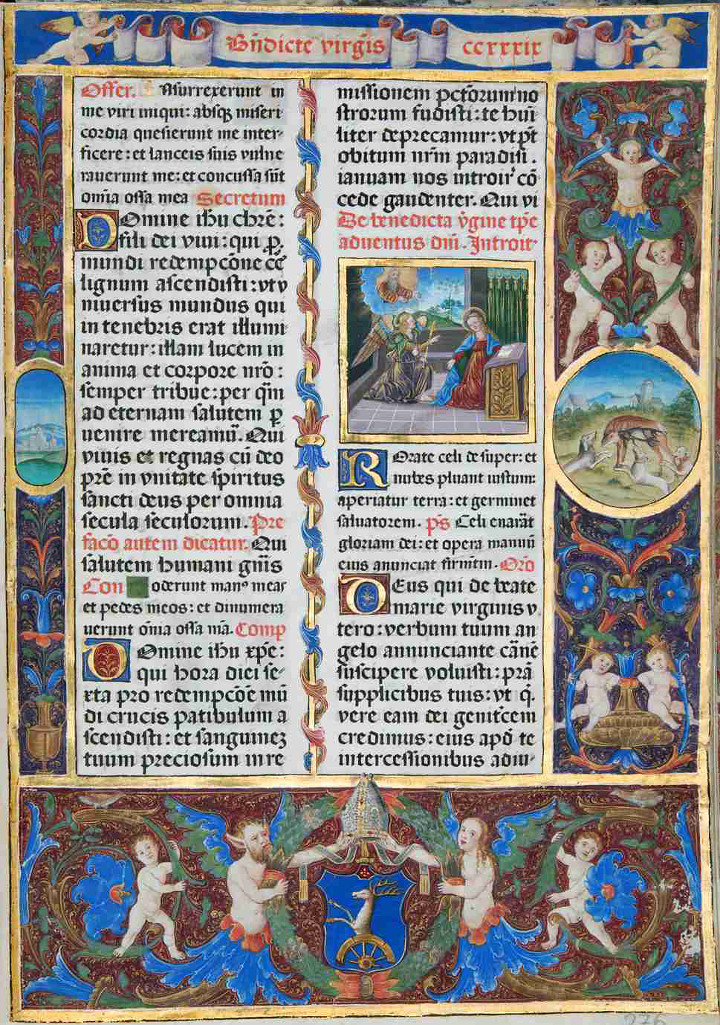 Bn̄dicte virgīs ccxxxix
Offer. Insurrexerunt in
me viri iniqui: absqꝫ miseri
cordia quesierunt me inter-
ficere: et lanceis suis vulne
rauerunt me: et concussa sūt
om̄ia ossa mea Secretum
Domine ihu chr̄e:
fili dei viui: qui ꝓ
mundi redempcōne cē
lignum ascendisti: vt v
niuersus mundus qui
in tenebris erat illumi
naretur: illam lucem in
anima et corpore nr̄o:
semper tribue: per q̄m
ad eternam salutem ꝑ
uenire mereamur̄. Qui
viuis et regnas cū deo
pr̄e in vnitate spiritus
sancti deus per omnia
secula seculorum. Pre
facō autem dicatur. Qui
salutem humani gn̄is
Con oderunt manꝰ meas
et pedes meos: et dinumera
uerunt om̄ia ossa mā. Comp
Domine ihu xp̄e:
qui hora diei se-
xta pro redempcōe mū
di crucis patibulum a
scendisti: et sanguineꝫ
tuum preciosum in re
missionem pctorum no
strorum fudisti: te hūi
liter deprecamur: vt pt
obitum nr̄m paradisi.
ianuam nos introir̄ cō
cede gaudenter. Qui vi
De benedicta ṽgine tp̄e
aduentus dn̄i. Introit
Rorate celi desuper: et
nubes pluant iustum:
aperiatur terra: et germinet
saluatorem. p̄s Celi enarāt
gloriam dei: et opera manuū
eius anunciat firm̄tm̄. Orō
Deus qui de beate
marie virginis v
tero: verbum tuum an
gelo annunciante carnē
suscipere voluisti: prā
supplicibus tuis: vt q̇
vere eam dei genitcem
credimus: eius apd̄ te
intercessionibus adiu